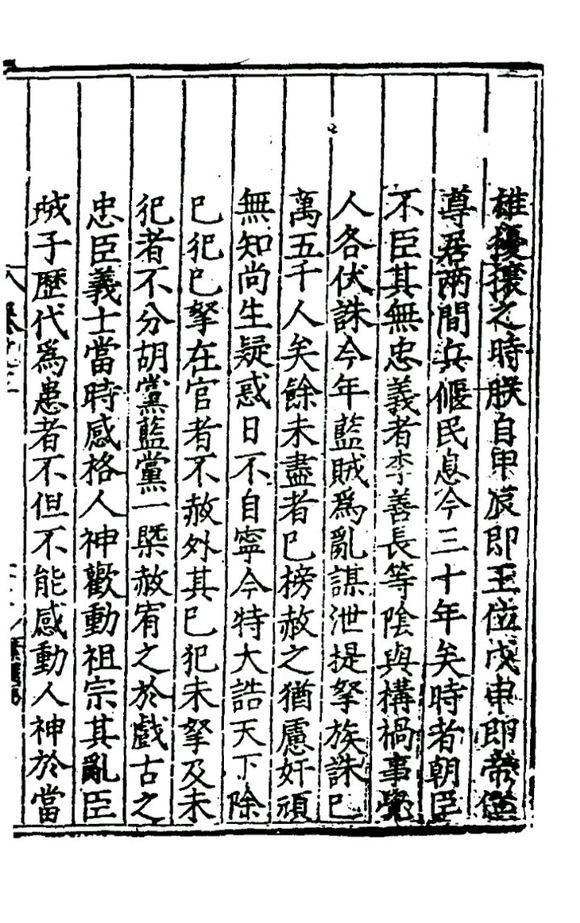 雄擾攘之時朕自甲辰即王位戊申即帝位
尊居兩間兵偃民息今三十年矣時者朝臣
不臣其無忠義者李善長等陰與構禍事覺
人各伏誅今年藍賊爲亂謀泄提拏族誅已
萬五千人矣餘未盡者已榜赦之猶慮奸頑
無知尚生疑惑日不自寧今特大誥天下除
已犯已拏在官者不赦外其已犯未拏及未
犯者不分胡黨藍黨一槩赦宥之於戲古之
忠臣義士當時感格人神歡動祖宗其亂臣
賊子歷代爲患者不但不能感動人神於當